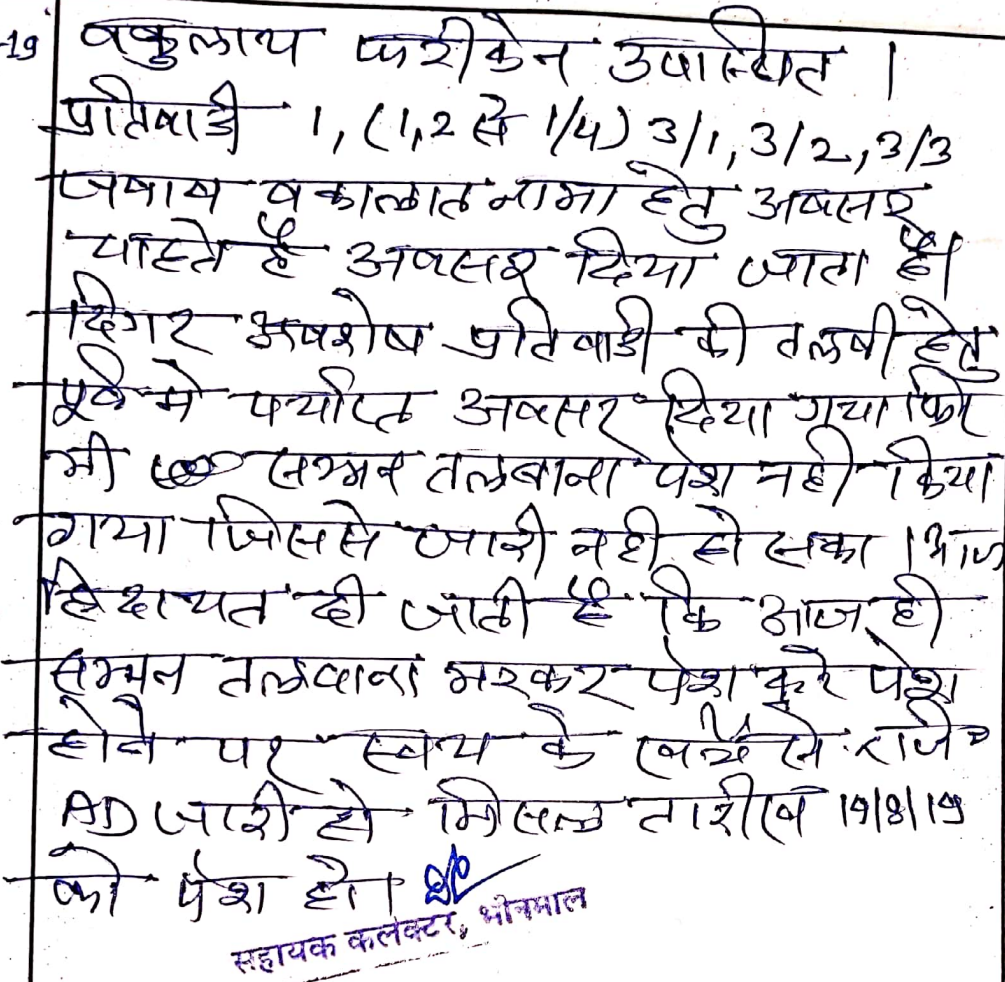 -19 वकुलाय फरीकेन उपस्थित ।
प्रतिवादी 1, (1,2 से 1/4) 3/1, 3/2, 3/3
जवाब वकालातनामा हेतु अवसर
चाहते है अवसर दिया जाता है।
दिगर अवशेष प्रतिवादी की तलबी हेतु
पूर्व मे पर्याप्त अवसर दिया गया फिर
भी सम्मन तलबाना पेश नही किया
गया जिससे जारी नही हो सका । आज
हिदायत दी जाती है कि आज ही
सम्मन तलवाना भरकर पेश करे पेश
होने पर स्वयं के खर्चे से राजि०
AD जारी हो मिसल तारीख 19/8/19
को पेश हो।
सहायक कलेक्टर, भीनमाल